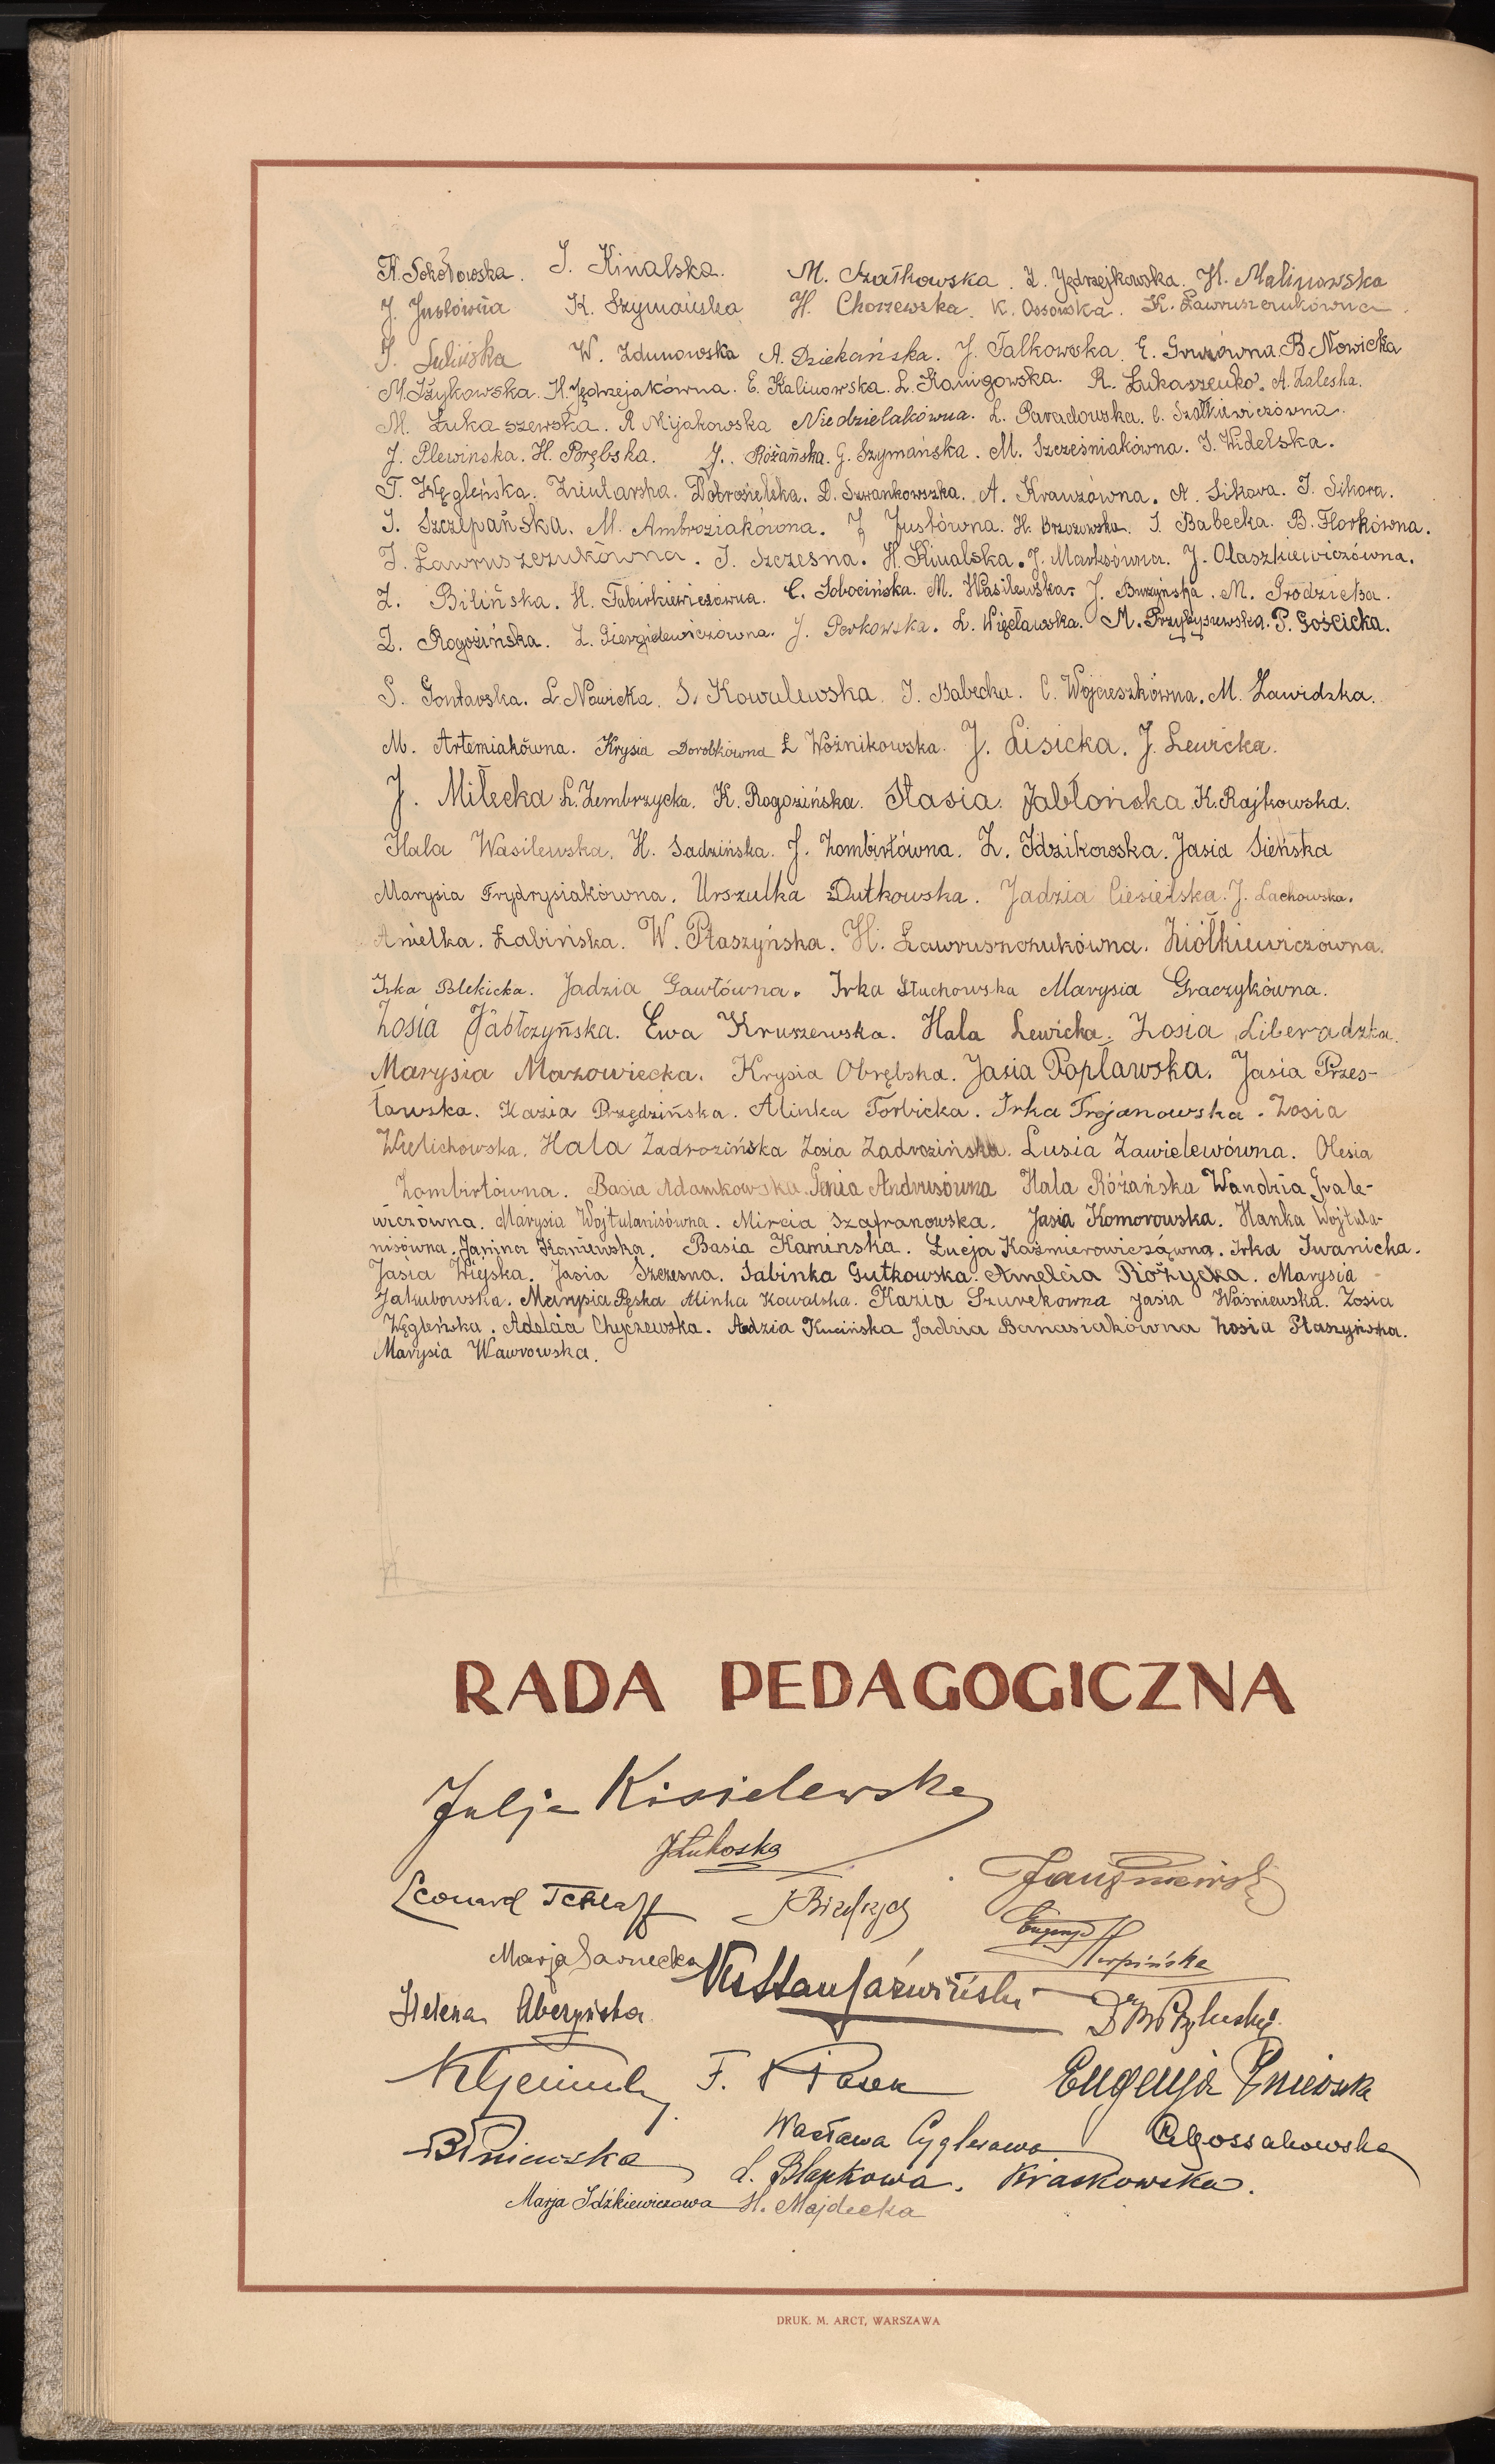 K. Sokołowska. I. Kinalska. M. Szatkowska. Z. Jędrzejkowska. H. Malinowska
J. Justówna K. Szymańska H. Choszewska. K. Ossowska. K. Ławruszczukówna.
J. Sulińska W. Zdunowska A. Dziekańska. J. Talkowska. E. B. Nowicka
M. Iżykowska. H. Jędrzejakówna. E. Kalinowska. L. Kanigowska. R. Łukaszenko. A. Zaleska.
M. Łukaszewska. R Mijakowska Niedzielakówna. L. Paradowska. C. Szatkiewiczówna.
J. Plewińska. H. Porębska. J. Różańska. G. Szymańska. M. Szcześniakówna. I. Widelska.
T. Węgleńska. Dobrosielska. D. Szwankowszka. A. Krauzówna. A. Sikora. I. Sikora.
I. Szczepańska. M. Ambroziakówna. J Justówna. H. Brzozowska. I. Babecka. B. Florkówna.
I. Ławruszczukówna. I. Szczesna. H. Kinalska. J. Marksówna. J. Olaszkiewiczówna.
Z. Bilińska. H. Tabirkiewiczówna. C. Sobocińska. M. Wasilewska. J. Burzyńska. M. Grodzicka.
Z. Rogozińska. J. Perkowska. L. Więcławska. M. Przybyszewska. P. Gościcka.
S. Gontarska. L. Nowicka. S. Kowalewska. I. Babecka. C. Wojcieszkówna. M. Zawidzka.
M. Artemiakówna. Krysia Dorobkówna Ł Woźnikowska. J. Lisicka. J. Lewicka.
J. Miłecka L. Zembrzycka. K. Rogozińska. Stasia Jabłońska K. Rajkowska.
Hala Wasilewska. H. Sadzińska. J. Zombirtówna. Z. Idzikowska. Jasia Sieńska
Marysia Frydrysiakówna. Urszulka Dutkowska. Jadzia Ciesielska. J. Lachowska.
Anielka. Łabińska. W. Ptaszyńska. H. Ławrusnczukówna. Ziółkiewiczówna.
Irka Blekicka. Jadzia Gawłówna. Irka Słuchowska Marysia Graczykówna.
Zosia Jabłczyńska. Ewa Kruszewska. Hala Lewicka. Zosia Liberadzka.
Marysia Mazowiecka. Krysia Obrębska. Jasia Popławska. Jasia Przes-
ławska. Kazia Przędzińska. Alinka Torbicka. Irka Trojanowska. Zosia
Wielichowska. Hala Zadrozińska Zosia Zadrozińska. Lusia Zawielewówna. Olesia
Zombirtówna. Basia Adamkowska. Genia Andrusówna Hala Różańska Wandzia Iwale-
wiczówna. Marysia Wojtulanisówna. Mircia Szafranowska. Jasia Komorowska. Hanka Wojtula-
nisówna. Janina Kaniewska. Basia Kamińska. Łucja Kaźmierowiczówna. Irka Iwanicka.
Jasia Wiejska. Jasia Szczesna. Sabinka Gutkowska. Amelcia Różycka. Marysia
Jakubowska. Marysia Pęska Alinka Kowalska. Kazia Szurekowna Jasia Waśniewska. Zosia
Węgleńska. Adelcia Chyczewska. Adzia Kucińska Jadzia Banasiakówna Zosia Ptaszyńska.
Marysia Wawrowska.
RADA PEDAGOGICZNA
Julja Kisielewska
JŁukoska
Leonard
Eugenja Skarpińska
Marja Sarnecka
Helena
F. Eugenja Pniewska
BPniewska Wacława Cyglerowa Ossakowska
L. Blapkowa. Kraskowska.
Marja Idźkiewiczowa H. Majdecka
DRUK. M. ARCT, WARSZAWA